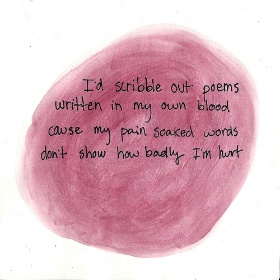 I'd scribble out poems
written in my own blood
cause my pain soaked words
don't show how badly I'm hurt